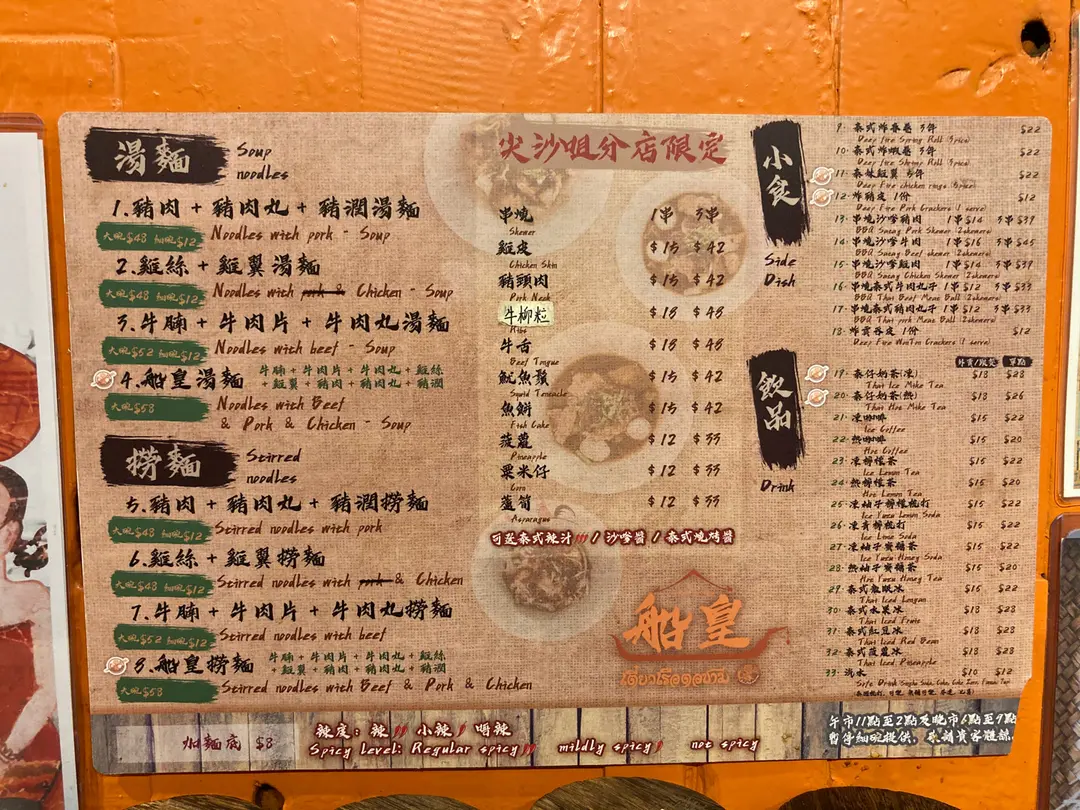 湯麵
Soup
noodles
1.豬肉 + 豬肉丸 + 豬潤湯麵
大碗$48 細碗$12
Noodles with pork - Soup
2.雞絲 + 雞翼湯麵
大碗$48 細碗$12
Noodles with pork & Chicken - Soup
3.牛腩 + 牛肉片 + 牛肉丸湯麵
大碗$52 細碗$12
Noodles with beef - Soup
4.船皇湯麵
牛腩 + 牛肉片 + 牛肉丸 + 雞絲
+ 雞翼 + 豬肉 + 豬肉丸 + 豬潤
大碗$58
Noodles with Beef
& Pork & Chicken - Soup
撈麵
Stirred
noodles
5.豬肉 + 豬肉丸 + 豬潤撈麵
大碗$48 細碗$12
Stirred noodles with pork
6.雞絲 + 雞翼撈麵
大碗$48 細碗$12
Stirred noodles with pork & Chicken
7.牛腩 + 牛肉片 + 牛肉丸撈麵
大碗$52 細碗$12
Stirred noodles with beef
8.船皇撈麵
牛腩 + 牛肉片 + 牛肉丸 + 雞絲
+ 雞翼 + 豬肉 + 豬肉丸 + 豬潤
大碗$58
Stirred noodles with Beef & Pork & Chicken
尖沙咀分店限定
串燒 1串 3串
Skewer
雞皮 $15 $42
Chicken Skin
豬頸肉 $15 $42
Pork Neck
牛柳粒 $18 $48
Ribs
牛舌 $18 $48
Beef Tongue
魷魚鬚 $15 $42
Squid Tentacle
魚餅 $15 $42
Fish Cake
菠蘿 $12 $33
Pineapple
粟米仔 $12 $33
Corn
蘆筍 $12 $33
Asparagus
可送泰式辣汁 / 沙嗲醬 / 泰式燒烤醬
船皇
小食
Side
Dish
9. 泰式炸春卷 3件 $22
Deep fire Spring Roll (3pics)
10. 泰式炸蝦卷 3件 $22
Deep fire Shrimp Roll (3pics)
11. 泰妹雞翼 5件 $22
12. 炸豬皮 1份 $12
Deep Fire Pork Crackers (1 serve)
13. 串燒沙嗲豬肉 1串$14 3串$39
BBQ Satay Pork Skewer (2skewers)
14. 串燒沙嗲牛肉 1串$16 3串$45
BBQ Satay Beef skewer (2skewers)
15. 串燒沙嗲雞肉 1串$14 3串$39
BBQ Satay Chicken Skewer (2skewers)
16. 串燒泰式牛肉丸子 1串$12 3串$33
BBQ Thai Beef Meat Ball (2skewers)
17. 串燒泰式豬肉丸子 1串$12 3串$33
BBQ Thai pork Meat Ball (2skewers)
18. 炸雲吞皮 1份 $12
Deep Fire WonTon Crackers (1 serve)
飲品
Drink
外賣/跟餐 單點
19. 泰仔奶茶(凍) $18 $28
Thai Ice Milk Tea
20. 泰仔奶茶(熱) $18 $26
Thai Hot Milk Tea
21. 凍咖啡 $15 $22
Ice Coffee
22. 熱咖啡 $15 $20
Hot Coffee
23. 凍檸檬茶 $15 $22
Ice Lemon Tea
24. 熱檸檬茶 $15 $20
Hot Lemon Tea
25. 凍柚子檸檬梳打 $15 $22
Ice Yuzu Lemon Soda
26. 凍青檸梳打 $15 $22
Ice Lime Soda
27. 凍柚子蜜糖茶 $15 $22
Ice Yuzu Honey Soda
28. 熱柚子蜜糖茶 $15 $20
Hot Yuzu Honey Tea
29. 泰式龍眼冰 $15 $22
Thai Iced Longan
30. 泰式水果冰 $18 $28
Thai Iced Fruits
31. 泰式紅豆冰 $18 $28
Thai Iced Red Bean
32. 泰式菠蘿冰 $18 $28
Thai Iced Pineapple
33. 汽水 $10 $12
加麵底 $8
辣度: 辣 小辣 唔辣
Spicy Level: Regular spicy mildly spicy not spicy
午市11點至2點及晚市6點至9點
暫停細碗提供,